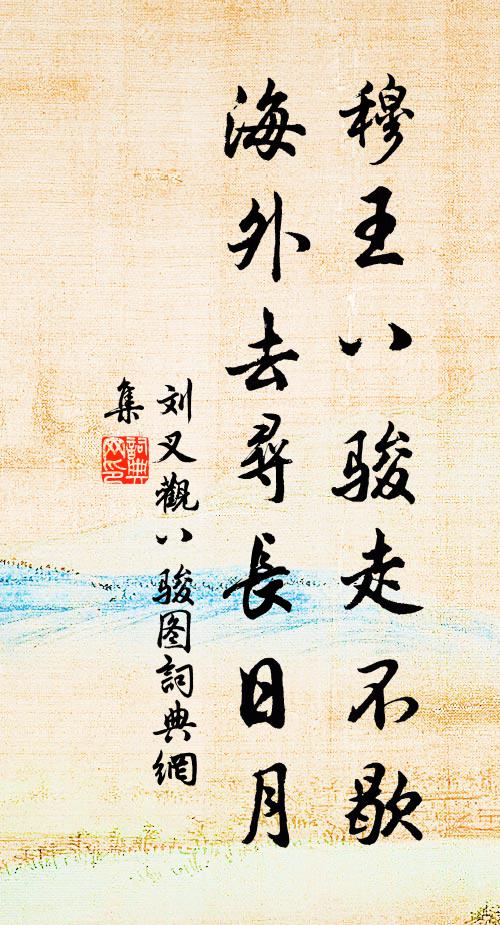 穆王八骏走不歇
海外去尋長日月
刘叉觀八骏图詞典網
集
詞典